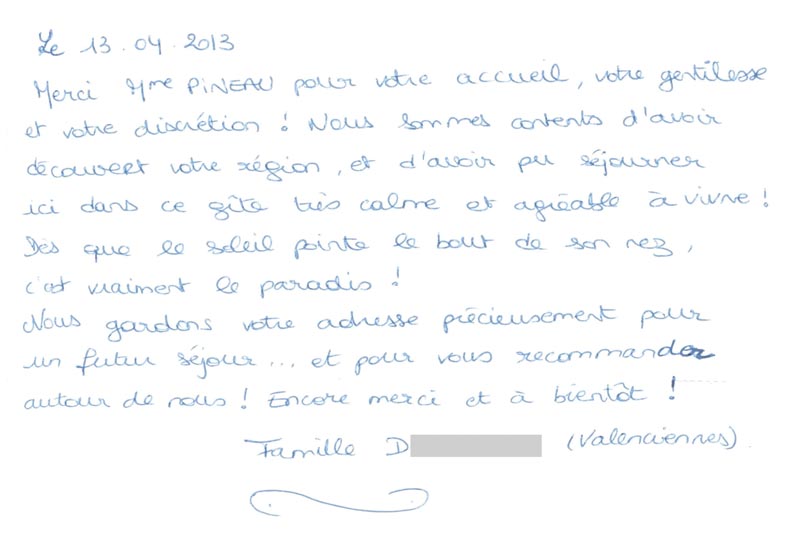 Le 13.04.2013
Merci Mme PINEAU pour votre accueil, votre gentilesse
et votre discrétion ! Nous sommes contents d'avoir
découvert votre région, et d'avoir pu séjourner
ici dans ce gîte très calme et agréable à vivre !
Dès que le soleil pointe le bout de son nez,
c'est vraiment le paradis !
Nous gardons votre adresse précieusement pour
un futur séjour... et pour vous recommander
autour de nous ! Encore merci et à bientôt !
Famille D (Valenciennes)